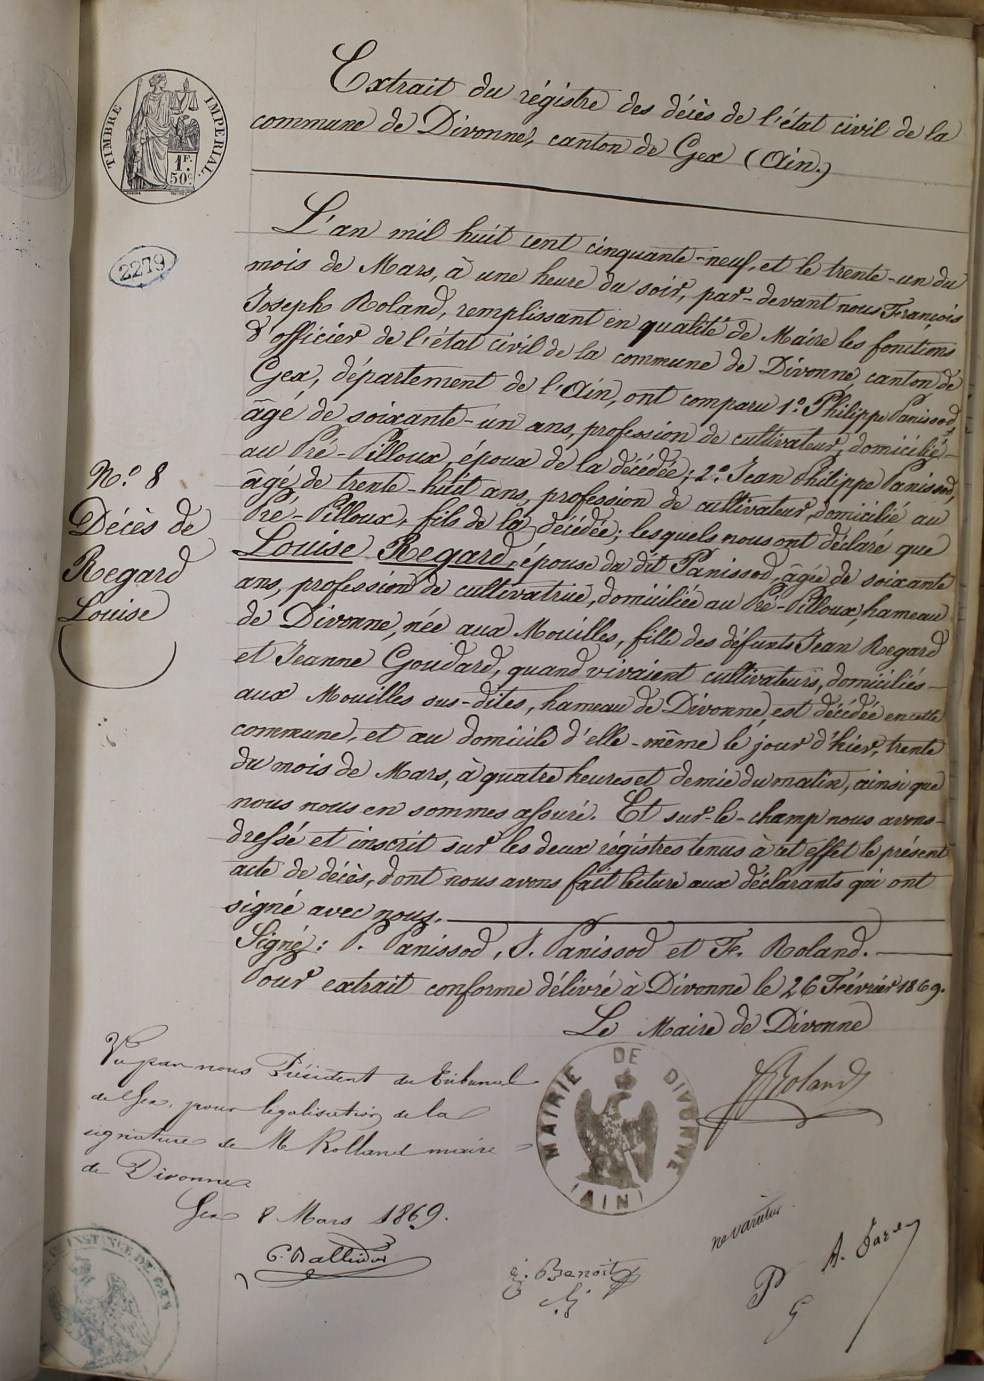 Extrait du régistre des décès de l'état civil de la
commune de Divonne, canton de Gex (Ain.)
TIMBRE IMPERIAL.
1F.
50c
2279
L'an mil huit cent cinquante-neuf, et le trente-un du
mois de Mars, à une heure du soir, par-devant nous François
Joseph Roland, remplissant en qualité de Maire les fonctions
d'officier de l'état civil de la commune de Divonne, canton de
Gex, département de l'Ain, ont comparu 1° Philippe Panissod,
âgé de soixante-un ans, profession de cultivateur, domicilié
au Pré-Pilloux, époux de la décédée; 2° Jean Philippe Panissod,
âgé de trente-huit ans, profession de cultivateur, domicilié au
Pré-Pilloux, fils de la décédée; lesquels nous ont déclaré que
Louise Regard, épouse du dit Panissod, âgée de soixante
ans, profession de cultivatrice, domiciliée au Pré-Pilloux, hameau
de Divonne, née aux Mouilles, fille des défunts Jean Regard
et Jeanne Goudard, quand vivaient cultivateurs, domiciliés
aux Mouilles sus-dites, hameau de Divonne, est décédée en cette
commune, et au domicile d'elle-même le jour d'hier, trente
du mois de Mars, à quatre heures et demie du matin, ainsi que
nous nous en sommes assuré. Et sur-le-champ nous avons
dressé et inscrit sur les deux régistres tenus à cet effet le présent
acte de décès, dont nous avons fait lecture aux déclarants qui ont
signé avec nous.
Signé: P. Panissod, J. Panissod et Fs. Roland.
Pour extrait conforme délivré à Divonne le 26 Février 1869.
Le Maire de Divonne
N° 8
Décès de
Regard
Louise
Roland
MAIRIE DE DIVONNE
(AIN)
Vu par nous Président du Tribunal
de Gex, pour légalisation de la
signature de M Rolland maire
de Divonne
Gex 8 Mars 1869.
INSTANCE DE GEX
E. Benoit
ne varietur
P
G
A. Fare